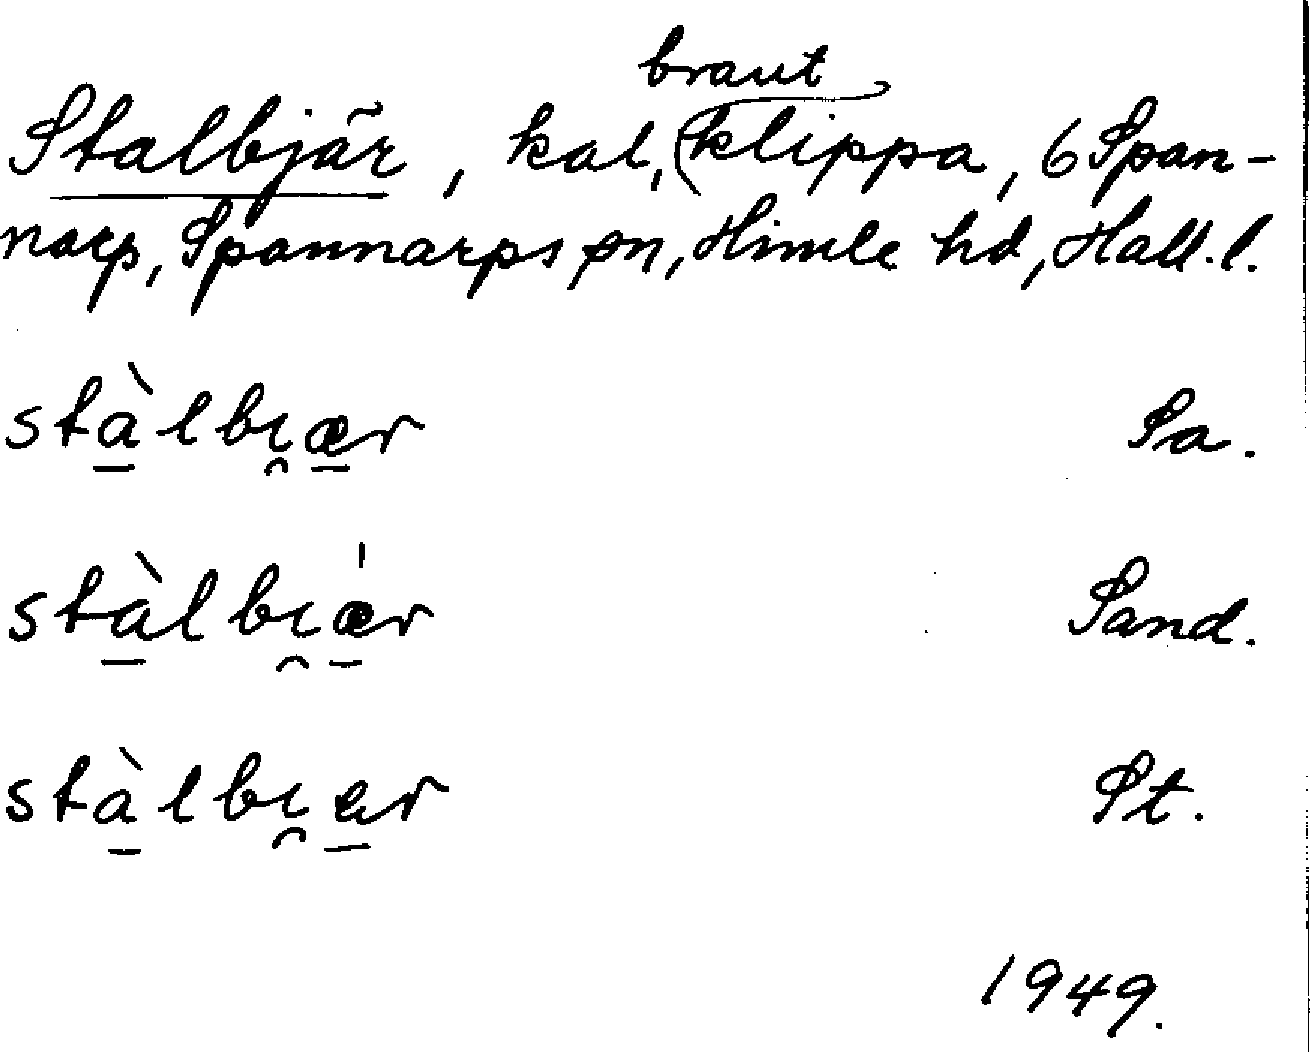 brant
Stalbjär, kal, klippa, 6 Span-
narp, Spannarps sn, Himle hd, Hall. l.
stàlbi̯ær Sa.
stàlbi̯æ̍r Sand.
stàlbi̯ær St.
1949.